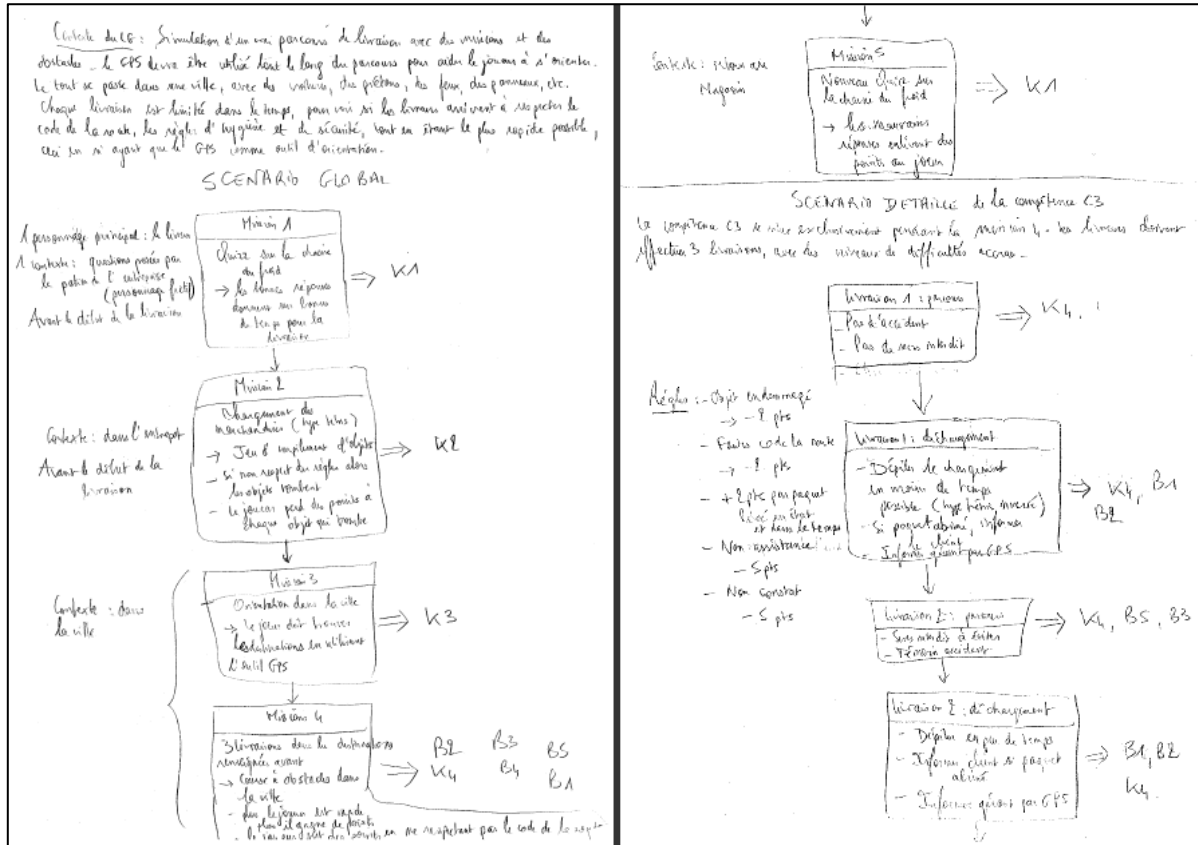 Contexte du LG : Simulation d'un vrai parcours de livraison avec des missions et des
obstacles. le GPS devra être utilisé tout le long du parcours pour aider le joueur à s'orienter.
Le tout se passe dans une ville, avec des voitures, des piétons, des feux, des panneaux, etc.
Chaque livraison est limitée dans le temps, pour voir si les livreurs arrivent à respecter le
code de la route, les règles d'hygiène et de sécurité, tout en étant le plus rapide possible,
ceci en n'ayant que le GPS comme outil d'orientation.
SCENARIO GLOBAL
1 personnage principal : le livreur
1 contexte : questions posées par
le patron de l'entreprise
(personnage fictif)
Avant le début de la livraison
Mission 1
Quizz sur la chaine
du froid
→ les bonnes réponses
donnent un bonus
de temps pour la
livraison
⇒ K1
Contexte : dans l'entrepot
Avant le début de la
livraison
Mission 2
Chargement des
marchandises (type tetris)
→ Jeu d'empilement d'objets
- Si non respect des règles alors
les objets tombent
- le joueur perd des points à
chaque objet qui tombe
⇒ K2
Contexte : dans
la ville
Mission 3
Orientation dans la ville
→ le joueur doit trouver
les destinations en utilisant
l'outil GPS
⇒ K3
Mission 4
3 livraisons dans les destinations
renseignées avant
→ Course à obstacles dans
la ville
- plus le joueur est rapide
plus il gagne de points
en ne respectant pas le code de la route
⇒ B2 B3 B5
K4 B4 B1
Contexte : retour au
Magasin
Mission 5
Nouveau Quizz sur
la chaine du froid
→ les mauvaises
réponses enlèvent des
points au joueur
⇒ K1
SCENARIO DETAILLÉ de la compétence C3
La compétence C3 se vise exclusivement pendant la mission 4. Les livreurs doivent
effectuer 3 livraisons, avec des niveaux de difficultés accrus.
Livraison 1 : parcours
- Pas d'accident
- Pas de sens interdit
⇒ K4,
Règles : - Objet endommagé
→ - 2 pts
- Fautes code de la route
→ - 2 pts
- + 2 pts par paquet
livré en état
et dans le temps
- Non assistance
- 5 pts
- Non constat
- 5 pts
Livraison 1 : déchargement
- Dépiler le chargement
en moins de temps
possible (type tetris inversé)
- Si paquet abimé, informer
le client
- Informer gérant par GPS
⇒ K4, B1
B2
Livraison 2 : parcours
- Sens interdit à éviter
- Témoin accident
⇒ K4, B5, B3
Livraison 2 : déchargement
- Dépiler en peu de temps
- Informer client si paquet
abimé
- Informer gérant par GPS
⇒ B1, B2
K4.